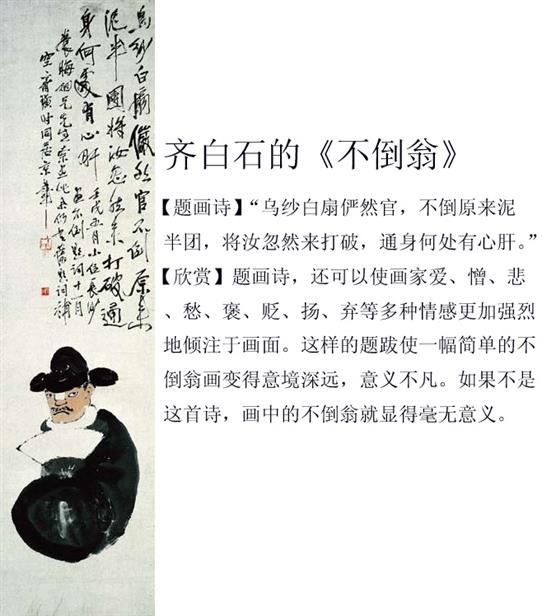 烏紗白扇儼然官不倒原來
泥半團將汝忽然來打破通
身何處有心肝
壬戌五月小住長沙
齊璜時同客京華
齐白石的《不倒翁》
【题画诗】“乌纱白扇俨然官，不倒原来泥
半团，将汝忽然来打破，通身何处有心肝。”
【欣赏】题画诗，还可以使画家爱、憎、悲
、愁、褒、贬、扬、弃等多种情感更加强烈
地倾注于画面。这样的题跋使一幅简单的不
倒翁画变得意境深远，意义不凡。如果不是
这首诗，画中的不倒翁就显得毫无意义。